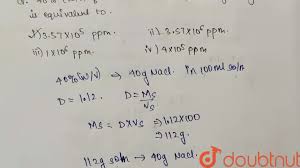 is equivalent to.
i) 3.57×10⁵ ppm.
ii) 3.57×10⁶ ppm.
iii) 1×10⁶ ppm.
iv) 4×10⁶ ppm.
40%(W/V) → 40g Nacl. in 100ml soln
D = 1.12. D = Ms/Vs
Ms = D×Vs ⇒ 1.12×100
⇒ 112g.
112g soln → 40g Nacl.
doubtnut